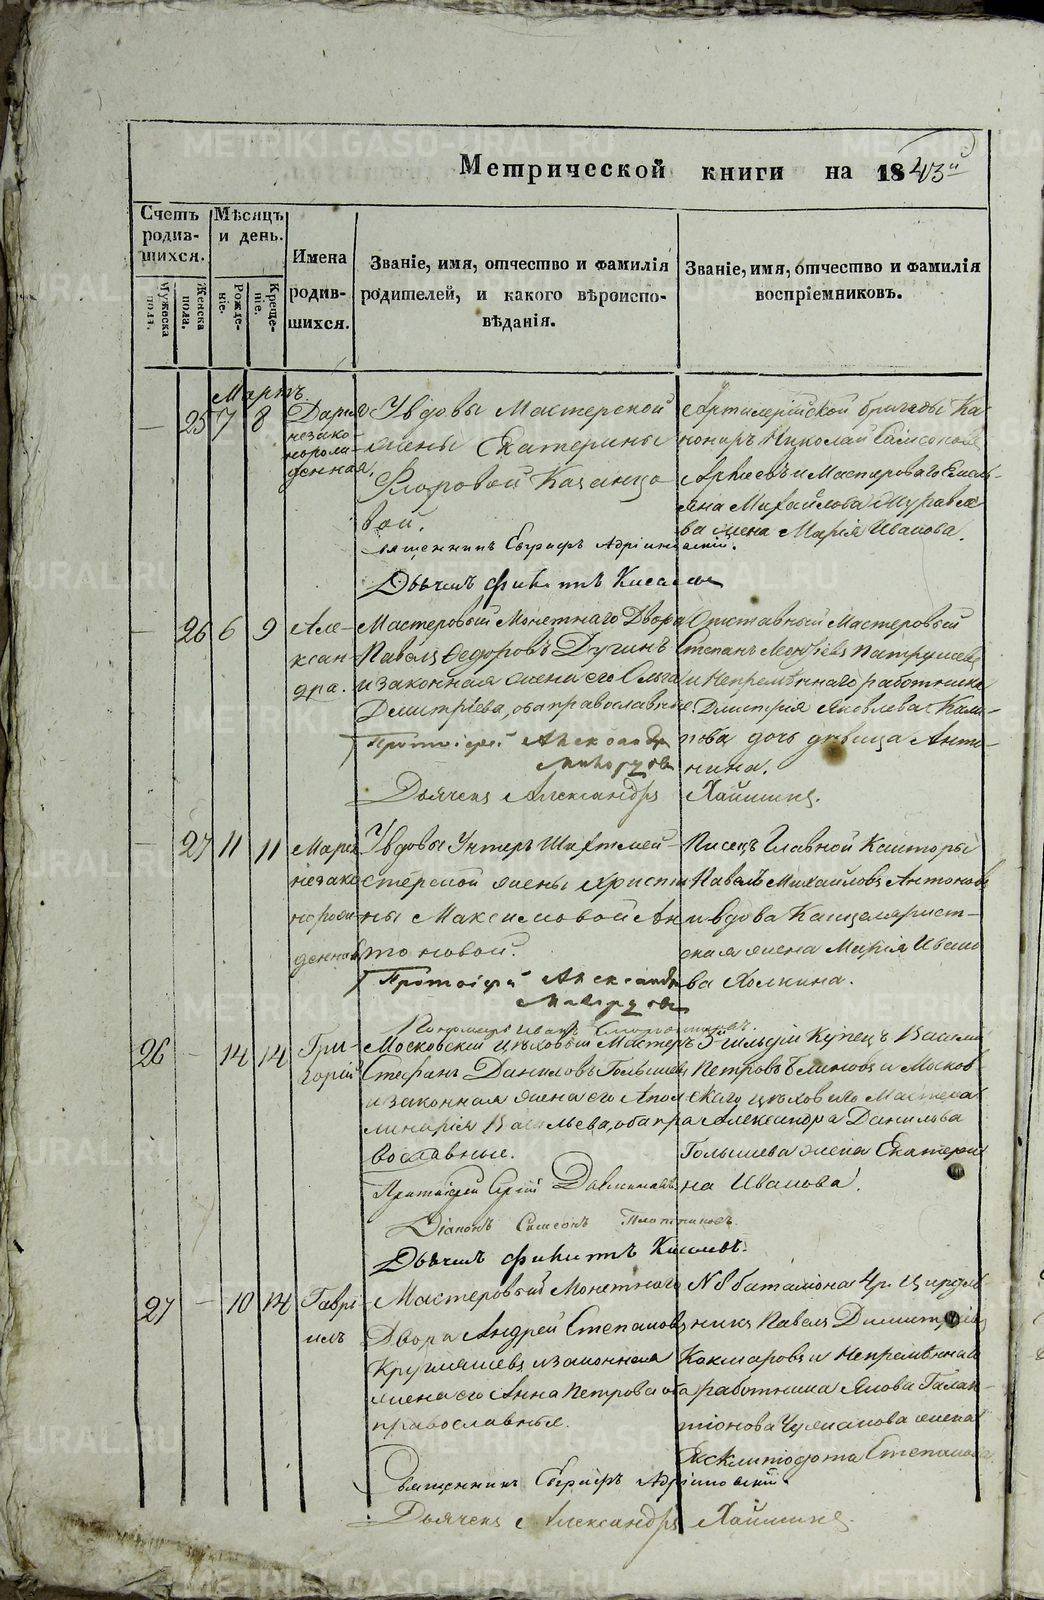 Метрической книги на 1843й
Счетъ родив-шихся.
Мужеска пола.
Женска пола.
Мѣсяцъ и день.
Рожде-ніе.
Креще-ніе.
Имена родив-шихся.
Званіе, имя, отчество и фамилія родителей, и какого вѣроиспо-вѣданія.
Званіе, имя, отчество и фамилія воспріемниковъ.
Мартъ.
— 25 7 8
Дарья
незако-
норож-
денная.
У вдовы Мастерской
жены Екатерины
Флоровой Казанцо-
вой.
Священникъ Адріановскій.
Дьячекъ
Артилерійской бригады Ка-
нониръ Николай
и Мастероваго Емель-
яна Михайлова Журавле-
ва жена Марія Иванова.
— 26 6 9
Але-
ксан-
дра.
Мастеровый Монетнаго Двора
Павелъ Ѳедоровъ Дугинъ
и законная жена его Ольга
Дмитріева, оба православные.
Протоіерей Александръ
Дьячекъ Александръ Хаймина.
Отставный Мастеровый
Степанъ Патрушевъ
и Непремѣннаго работника
Дмитрія Яковлева
дочь дѣвица Анто-
нина.
— 27 11 11
Марія
незако-
норож-
денная
У вдовы Унтеръ Шихтмей-
стерской жены Христи-
ны Максимовой Ан-
тоновой.
Протоіерей Александръ
Пономарь Иванъ
Писецъ Главной Конторы
Павелъ Михайловъ Антоновъ
и вдова Канцелярист-
ская жена Марія Ивано-
ва Холкина.
26 — 14 14
Гри-
горій
Московскій цѣховый Мастеръ
Стефанъ Даниловъ Голышевъ
и законная жена его Апол-
линарія Васильева, оба пра-
вославные.
Протоіерей Сергій
Діаконъ Самсонъ Плотниковъ.
Дьячекъ
3й гильдіи Купецъ Василій
Петровъ Блиновъ и Москов-
скаго цѣховаго Мастера
Александра Данилова
Голышева жена Екатери-
на Иванова.
27 — 10 14
Гаврі-
илъ
Мастеровый Монетнаго
Двора Андрей Степановъ
и законная
жена его Анна Петрова оба
православные.
Священникъ Адріановскій.
Дьячекъ Александръ Хаймина.
№ 8 баталіона
Павелъ Димитріевъ
и Непремѣннаго
работника Якова Галак-
тіонова жена
Степанова
METRIKI.GASO-URAL.RU